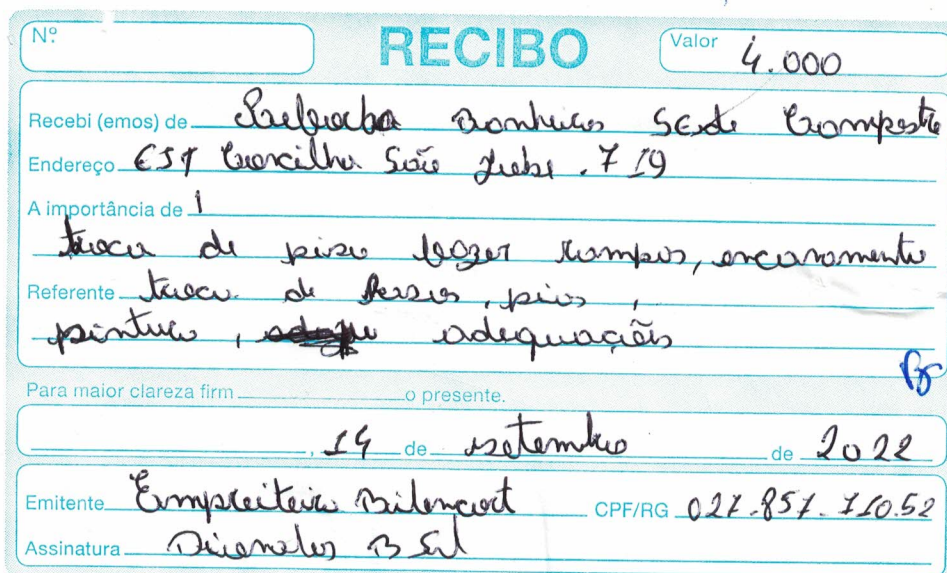 Nº
RECIBO
Valor 4.000
Recebi (emos) de Banheiros Sede Campestre
Endereço EST São 719
A importância de
troca de piso fazer rampas, encanamento
Referente troca de pias,
pintura, adequações
Para maior clareza firm o presente.
, 14 de setembro de 2022
Emitente Empreiteira Bitencort CPF/RG 027.857.710.52
Assinatura